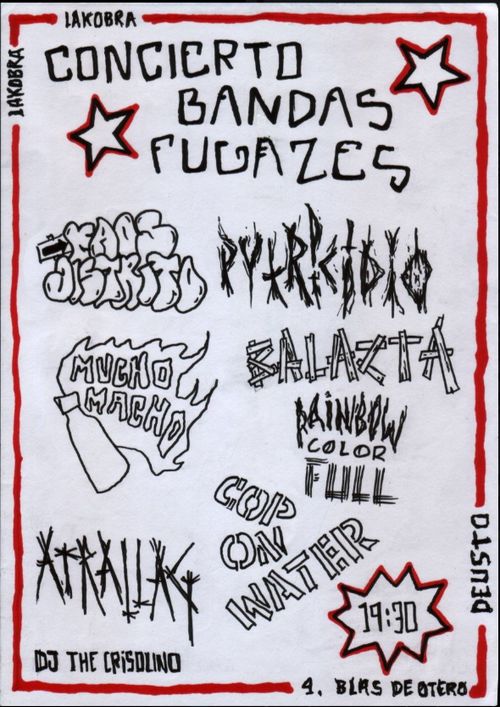 LAKOBRA
LAKOBRA
CONCIERTO
BANDAS
FUGAZES
KAOS
DISTRITO
BALAZTA
MUCHO
MACHO
RAINBOW
COLOR
FULL
COP
ON
WATER
19:30
DEUSTO
DJ THE CRISOLINO
4. BLAS DE OTERO